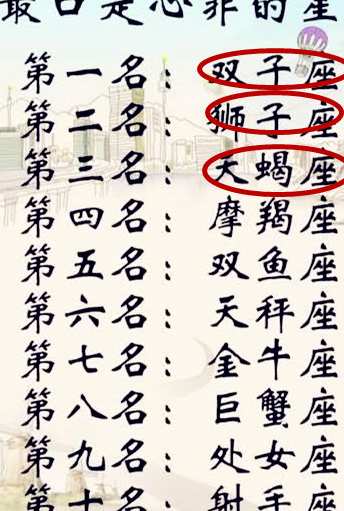 最口是心非的星
第一名：双子座
第二名：狮子座
第三名：天蝎座
第四名：摩羯座
第五名：双鱼座
第六名：天秤座
第七名：金牛座
第八名：巨蟹座
第九名：处女座
第十名：射手座